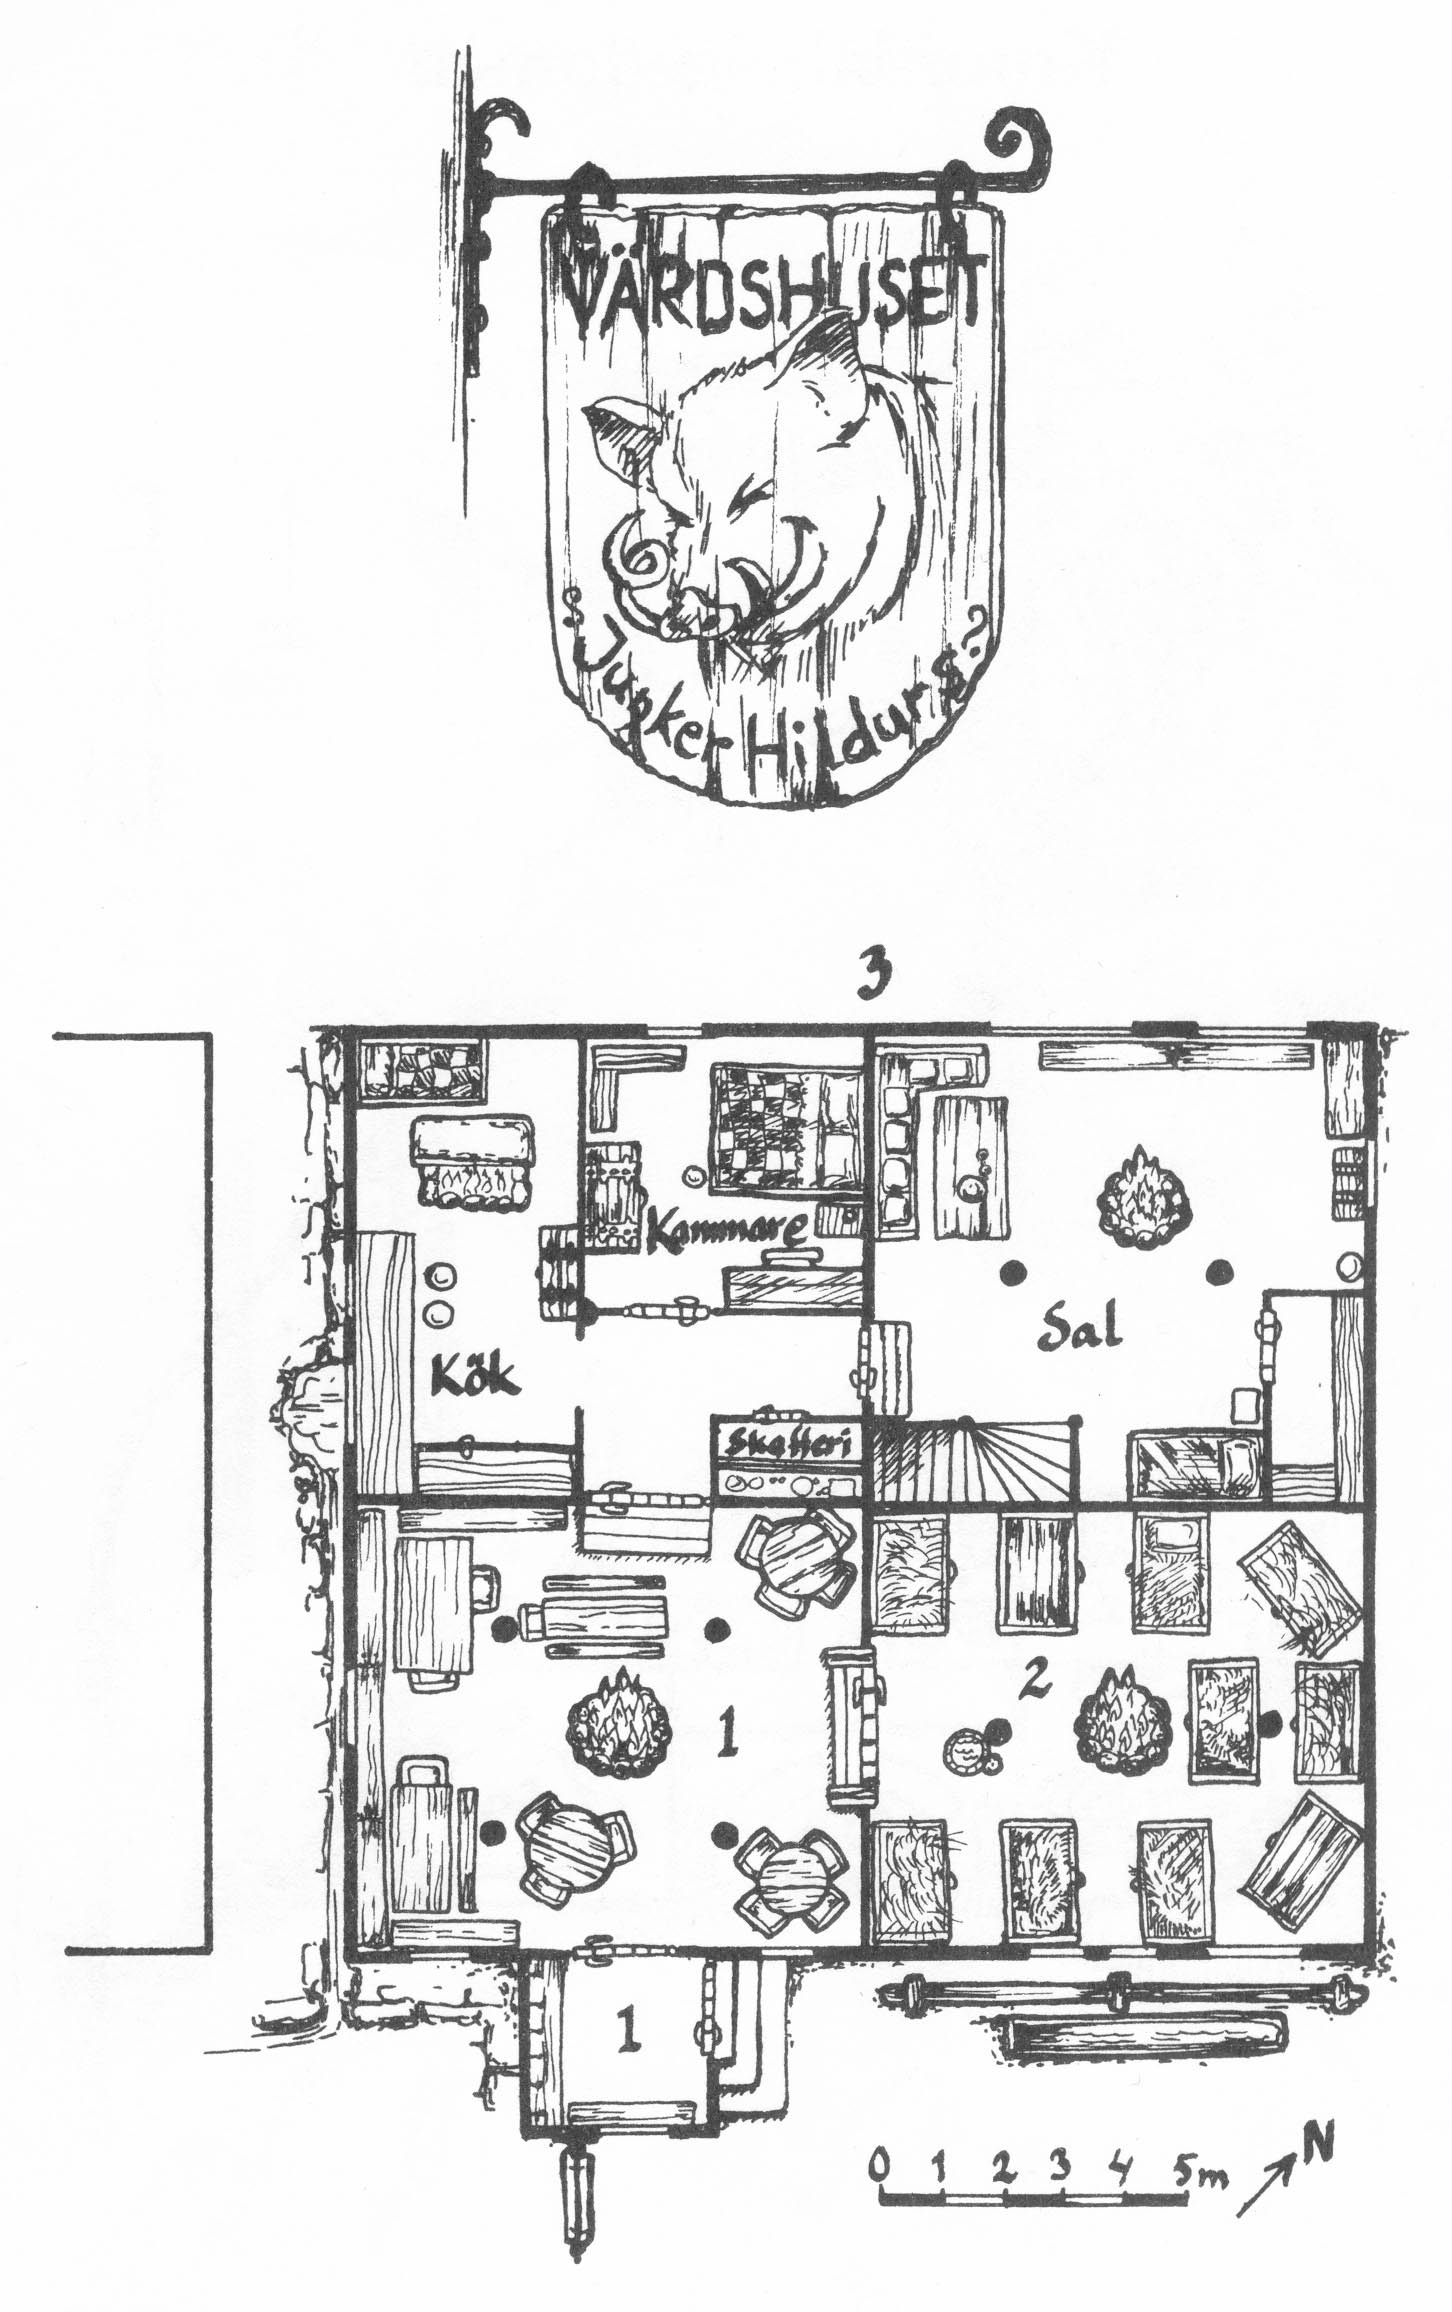 VÄRDSHUSET
Junker Hildurs
3
Kammare
Sal
Kök
Skafferi
2
1
1
N
0 1 2 3 4 5m